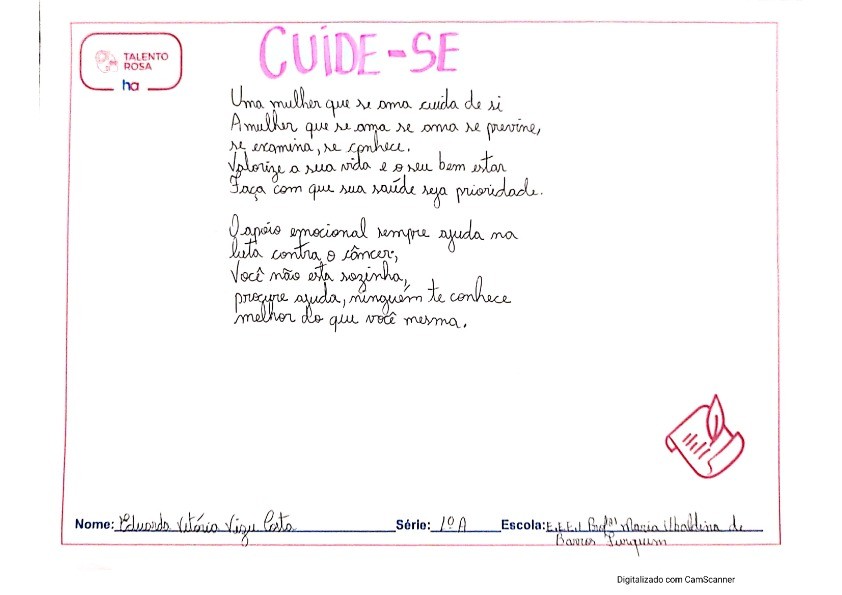 TALENTO
ROSA
ha
CUIDE-SE
Uma mulher que se ama cuida de si
A mulher que se ama se ama se previne,
se examina, se conhece.
Valorize a sua vida e o seu bem estar
Faça com que sua saúde seja prioridade.
O apoio emocional sempre ajuda na
luta contra o câncer,
Você não esta sozinha,
procure ajuda, ninguém te conhece
melhor do que você mesma.
Nome: Eduarda Vitória Costa
Série: 1º A
Escola: E.E.E.I Profª Maria de
Barros
Digitalizado com CamScanner